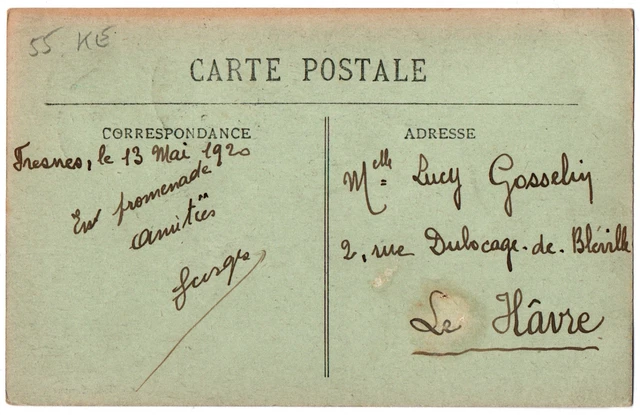 55 KE
CARTE POSTALE
CORRESPONDANCE
Fresnes, le 13 Mai 1920
En promenade
Amitiés
ADRESSE
Mlle Lucy Gosselin
2, rue Dubocage-de-Bléville
Le Hâvre